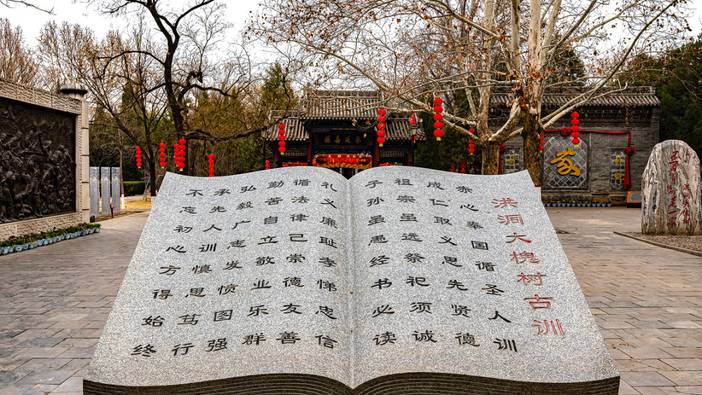 洪洞大槐树古训
赤心奉国循圣人训
成仁取义思先贤
祖宗虽远祭祀须诚
子孙虽愚经书必读
礼义廉耻孝悌忠信
循法律己崇德友善
勤苦自立敬业乐群
弘毅广志发愤图强
承先人训慎思笃行
不忘初心方得始终